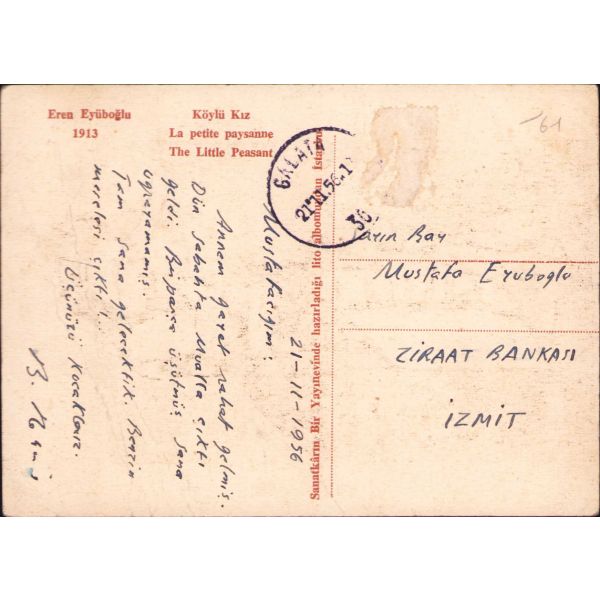 Eren Eyüboğlu
1913
Köylü Kız
La petite paysanne
The Little Peasant
Sanatkârın Bir Yayınevinde hazırladığı lito albomundan İstanbul
GALATA
21.11.56.1
36
61
21-11-1956
Mustafacığım:
Annem gayet rahat gelmiş.
Dün sabahta Mualla çıktı
geldi. Bir parça üşütmüş sana
uğrayamamış.
Tam sana gelecektik. Benzin
meselesi çıktı!..
Üçünüzü kucaklarız.
B.
Sayın Bay
Mustafa Eyuboglu
ZİRAAT BANKASI
İZMİT